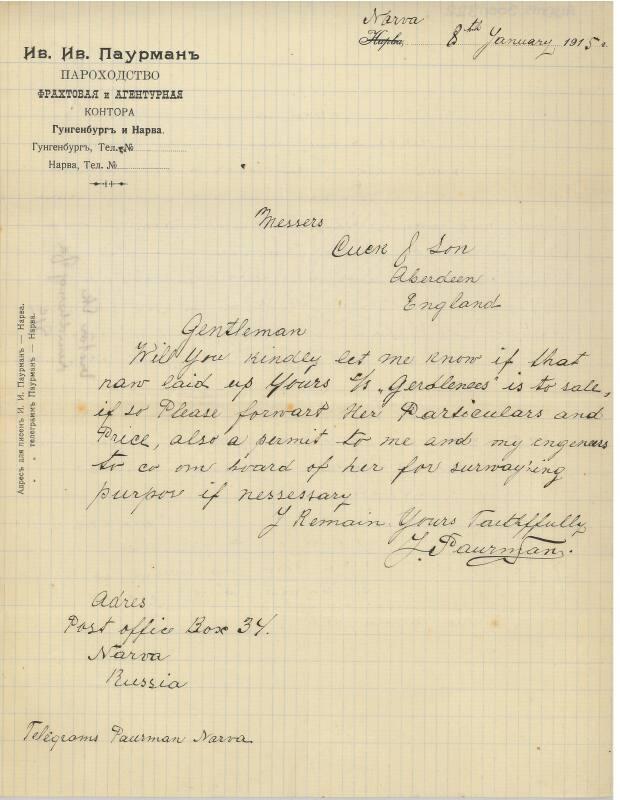 Narva
Нарва, 8th January 1915 г.
Ив. Ив. Паурманъ
ПАРОХОДСТВО
ФРАХТОВАЯ и АГЕНТУРНАЯ
КОНТОРА
Гунгенбургъ и Нарва.
Гунгенбургъ, Тел. №
Нарва, Тел. №
Messers
Cuck & Son
Aberdeen
England
Gentleman
Will You kindly let me know if that
naw laid up Yours S/s is to sale,
if so Please forwart Her Particulars and
Price, also a permit to me and my engeneers
to co om board of her for surwaying
purpos if nessessary
I Remain Yours Faithffully
J. Paurman.
Adres
Post office Box 34.
Narva
Russia
Telegrams Paurman Narva
Адресъ для писемъ И. И. Паурманъ — Нарва.
" " телеграмъ Паурманъ — Нарва.